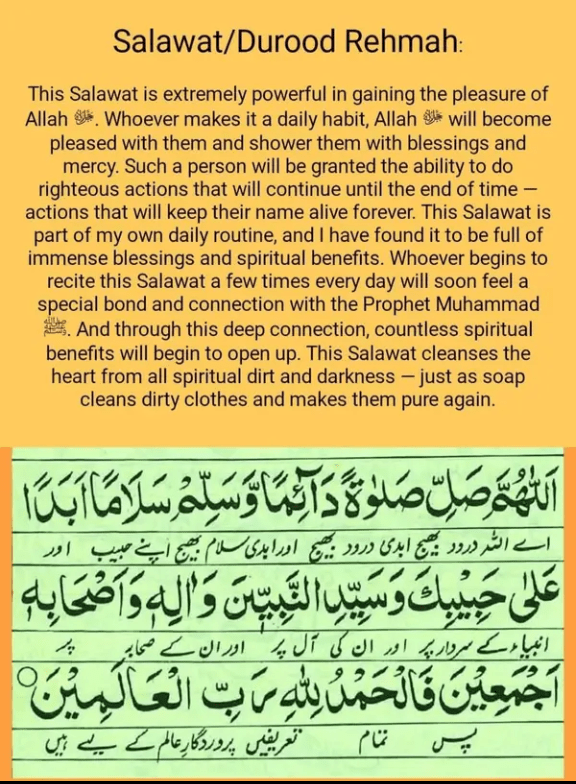 Salawat/Durood Rehmah:
This Salawat is extremely powerful in gaining the pleasure of
Allah ﷻ. Whoever makes it a daily habit, Allah ﷻ will become
pleased with them and shower them with blessings and
mercy. Such a person will be granted the ability to do
righteous actions that will continue until the end of time —
actions that will keep their name alive forever. This Salawat is
part of my own daily routine, and I have found it to be full of
immense blessings and spiritual benefits. Whoever begins to
recite this Salawat a few times every day will soon feel a
special bond and connection with the Prophet Muhammad
ﷺ. And through this deep connection, countless spiritual
benefits will begin to open up. This Salawat cleanses the
heart from all spiritual dirt and darkness — just as soap
cleans dirty clothes and makes them pure again.
اَللّٰهُمَّ صَلِّ صَلٰوةً دَآئِمًا وَّسَلِّمْ سَلَامًا اَبَدًا
اے اللہ درود بھیج ابدی درود بھیج اور ابدی سلام بھیج اپنے حبیب اور
عَلٰى حَبِيْبِكَ وَسَيِّدِ النَّبِيّٖنَ وَاٰلِهٖ وَاَصْحَابِهٖ
انبیاء کے سردار پر اور ان کی آل پر اور ان کے صحابہ پر
اَجْمَعِيْنَ فَالْحَمْدُ لِلّٰهِ رَبِّ الْعَالَمِيْنَ
پس تمام تعریفیں پروردگارِ عالم کے لیے ہیں